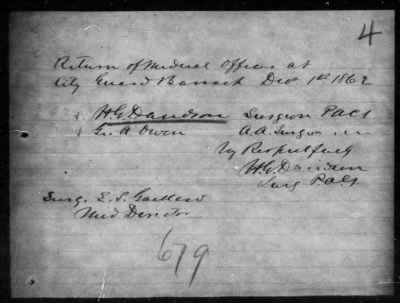 4
Return of Medical Officers at
City Guard Barrack Dec 1st 1862
H.G. Davidson Surgeon PACS
Geo. A. Owen A.A. Surgeon " "
Respectfully
H.G. Davidson
Surg PACS
Surg. E. S. Gaillard
Med Director
679